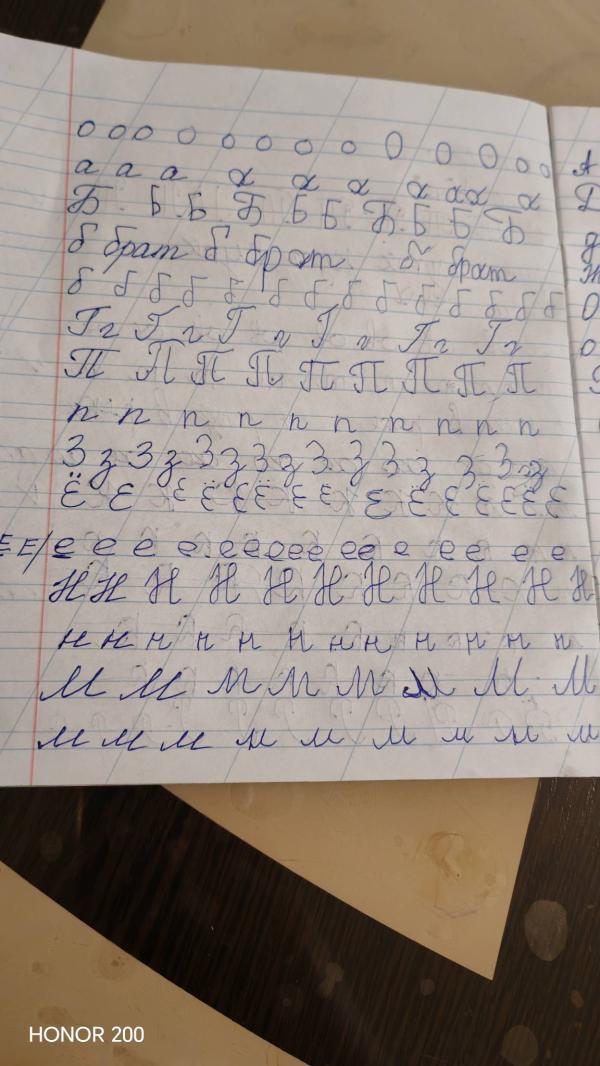 о о о о о о о о О О О о о
а а а а а а а а а а
Б Б Б Б Б Б Б Б Б Б
б брат б брат б брат
б б б б б б б б б б б б б б
Г г Г г Г г Г г Г г Г г
П П П П П П П П П
п п п п п п п п п п
З з З з З з З з З з З з з З з
Ё Ё Ё Ё Ё Ё Ё Ё Ё Ё Ё Ё Ё Ё
Е Е/ е е е е е е е е е е е е е е е е е
Н Н Н Н Н Н Н Н Н Н Н
н н н н н н н н н н н н
М М М М М М М М
м м м м м м м м м